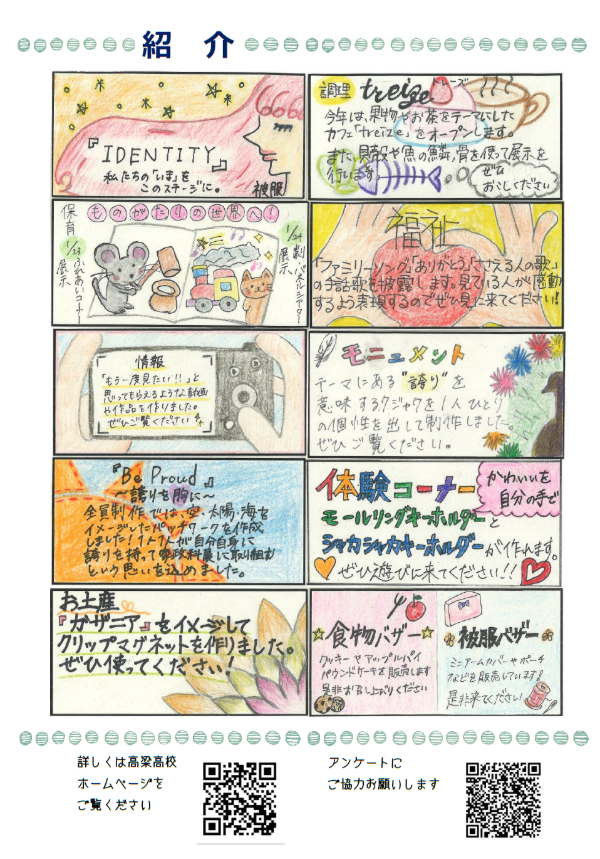 紹 介
『IDENTITY』
私たちの「いま」を
このステージに。
被服
調理 treize トレーズ
今年は、果物やお茶をテーマにした
カフェ「treize」をオープンします。
また、貝殻や魚の鱗、骨を使って展示を
行います。
ぜひ
お越しください
保育
ものがたりの世界へ!
1/23 ふれあいコーナー
展示
1/24 劇
パネルシアター
展示
福祉
「ファミリーソング」「ありがとう」「ささえる人の歌」
の手話歌を披露します。見ている人が感動
するよう表現するのでぜひ見に来てください!
情報
「もう一度見たい!!」と
思ってもらえるような動画
や作品を作りました。
ぜひご覧ください
モニュメント
テーマにある"誇り"を
意味するクジャクを1人ひとり
の個性を出して制作しました。
ぜひご覧ください。
『Be Proud』
〜誇りを胸に〜
全員制作では、空・太陽・海を
イメージしたパッチワークを作成
しました!1人1人が自分自身に
誇りを持って家政科展に取り組む
という思いを込めました。
体験コーナー
かわいいを
自分の手で
モールリングキーホルダーと
シャカシャカキーホルダーが作れます。
ぜひ遊びに来てください!!
お土産
『ガザニア』をイメージして
クリップマグネットを作りました。
ぜひ使ってください!
食物バザー
クッキーやアップルパイ
パウンドケーキを販売します
是非お召し上がりください
被服バザー
ミニアームカバーやポーチ
などを販売しています!
是非来てください!
詳しくは高梁高校
ホームページを
ご覧ください
アンケートに
ご協力お願いします